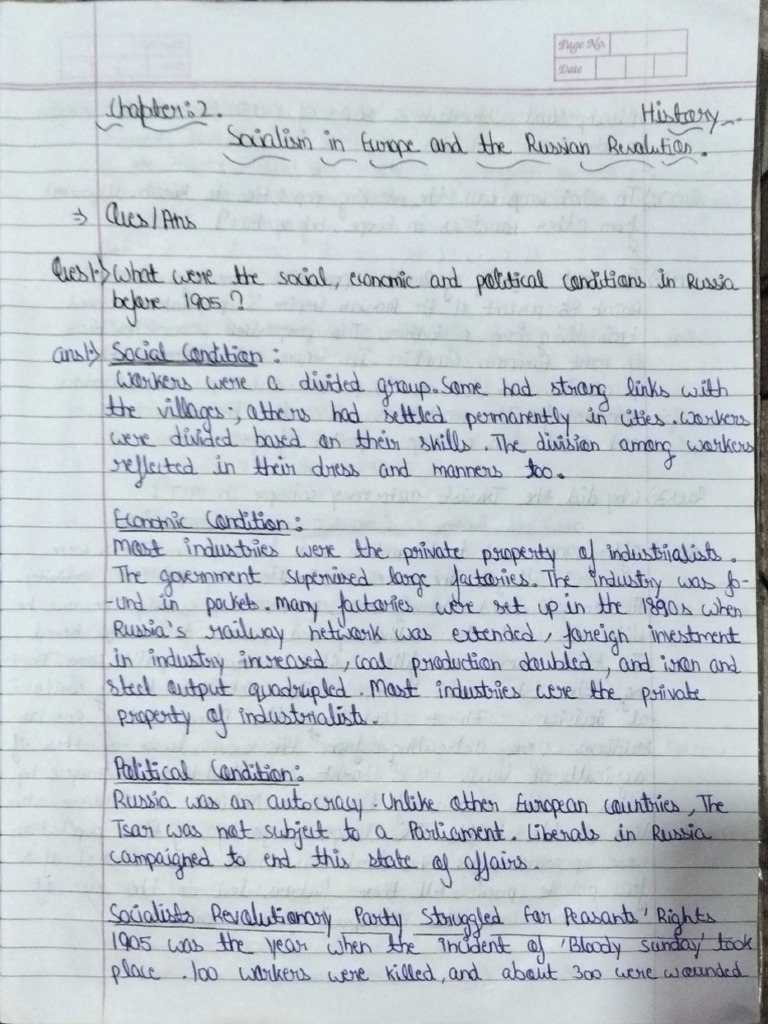 Page No.
Date
Chapter:2.
History
Socialism in Europe and the Russian Revolution.
⇒ Ques/Ans
Ques1→ What were the social, economic and political conditions in Russia
before 1905?
ans1→ Social Condition:
Workers were a divided group. Some had strong links with
the villages; others had settled permanently in cities. Workers
were divided based on their skills. The division among workers
reflected in their dress and manners too.
Economic Condition:
Most industries were the private property of industrialists.
The government supervised large factories. The industry was fo-
-und in pockets. Many factories were set up in the 1890s when
Russia's railway network was extended, foreign investment
in industry increased, coal production doubled, and iron and
steel output quadrupled. Most industries were the private
property of industrialists.
Political Condition:
Russia was an autocracy. Unlike other European countries, The
Tsar was not subject to a Parliament. Liberals in Russia
campaigned to end this state of affairs.
Socialists Revolutionary Party Struggled For Peasants' Rights
1905 was the year when the incident of 'Bloody Sunday' took
place. 100 workers were killed, and about 300 were wounded